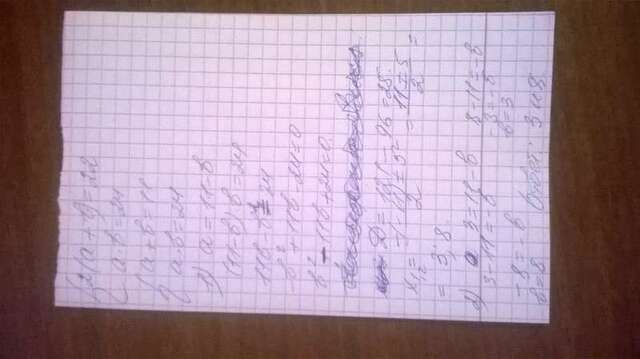 { 2(a + b) = 22
a·b = 24
{ a + b = 11
a·b = 24
1) a = 11 - b
(11-b)·b = 24
11b - b² = 24
-b² + 11b - 24 = 0
b² - 11b + 24 = 0
D = 121 - 96 = 25
x₁,₂ = -(-11) ± 5 / 2 = 11 ± 5 / 2 =
= 3; 8.
2) 3 = 11 - b 8 - 11 = -b
3 - 11 = -b -3 = -b
-8 = -b b = 3
b = 8 Ответ: 3 и 8.